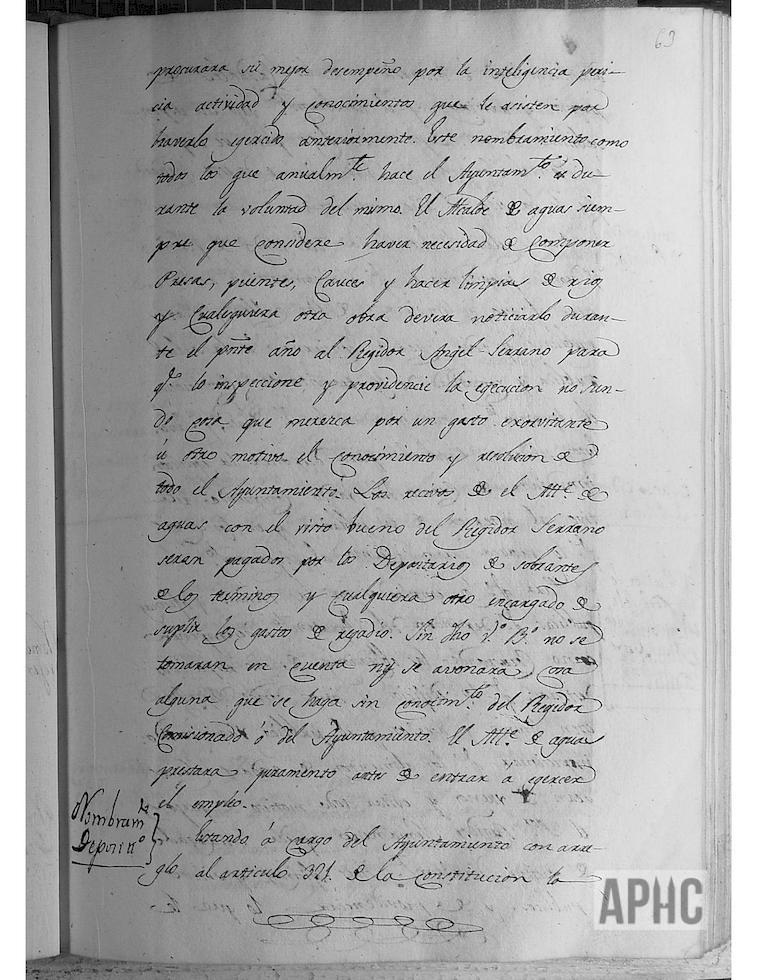 69
procurara su mejor desempeño por la inteligencia peri-
cia actividad y conocimientos que le asisten por
haverlo egercido anteriormente. Este nombramiento como
todos los que anualmte. hace el Ayuntamto. es du-
rante la voluntad del mismo. El Alcalde de aguas siem-
pre que considere haver necesidad de componer
Presas, puentes, Cauces y hacer limpias de rios
y Cualesquiera otra obra devera noticiarlo duran-
te el pnte año al Regidor Angel Serrano para
qe. lo inspeccione y providencie la egecucion no sien-
do cosa que merezca por un gasto exorvitante
ú otro motivo el conocimiento y resolucion de
todo el Ayuntamiento. Los recivos de el Alle. de
aguas con el visto bueno del Regidor Serrano
seran pagados por los Depositarios de sobrantes
de los terminos y cualquiera otro encargado de
suplir los gastos de regadio. Sin dho Vo. Bo. no se
tomaran en cuenta ni se avonara cosa
alguna que se haga sin conocimto. del Regidor
Comisionado ó del Ayuntamiento. El Alle. de aguas
prestara juramento antes de entrar a egercer
el empleo.
Nombramto
Estando á cargo del Ayuntamiento con arre-
glo al articulo 321. de la Constitucion la
APHC